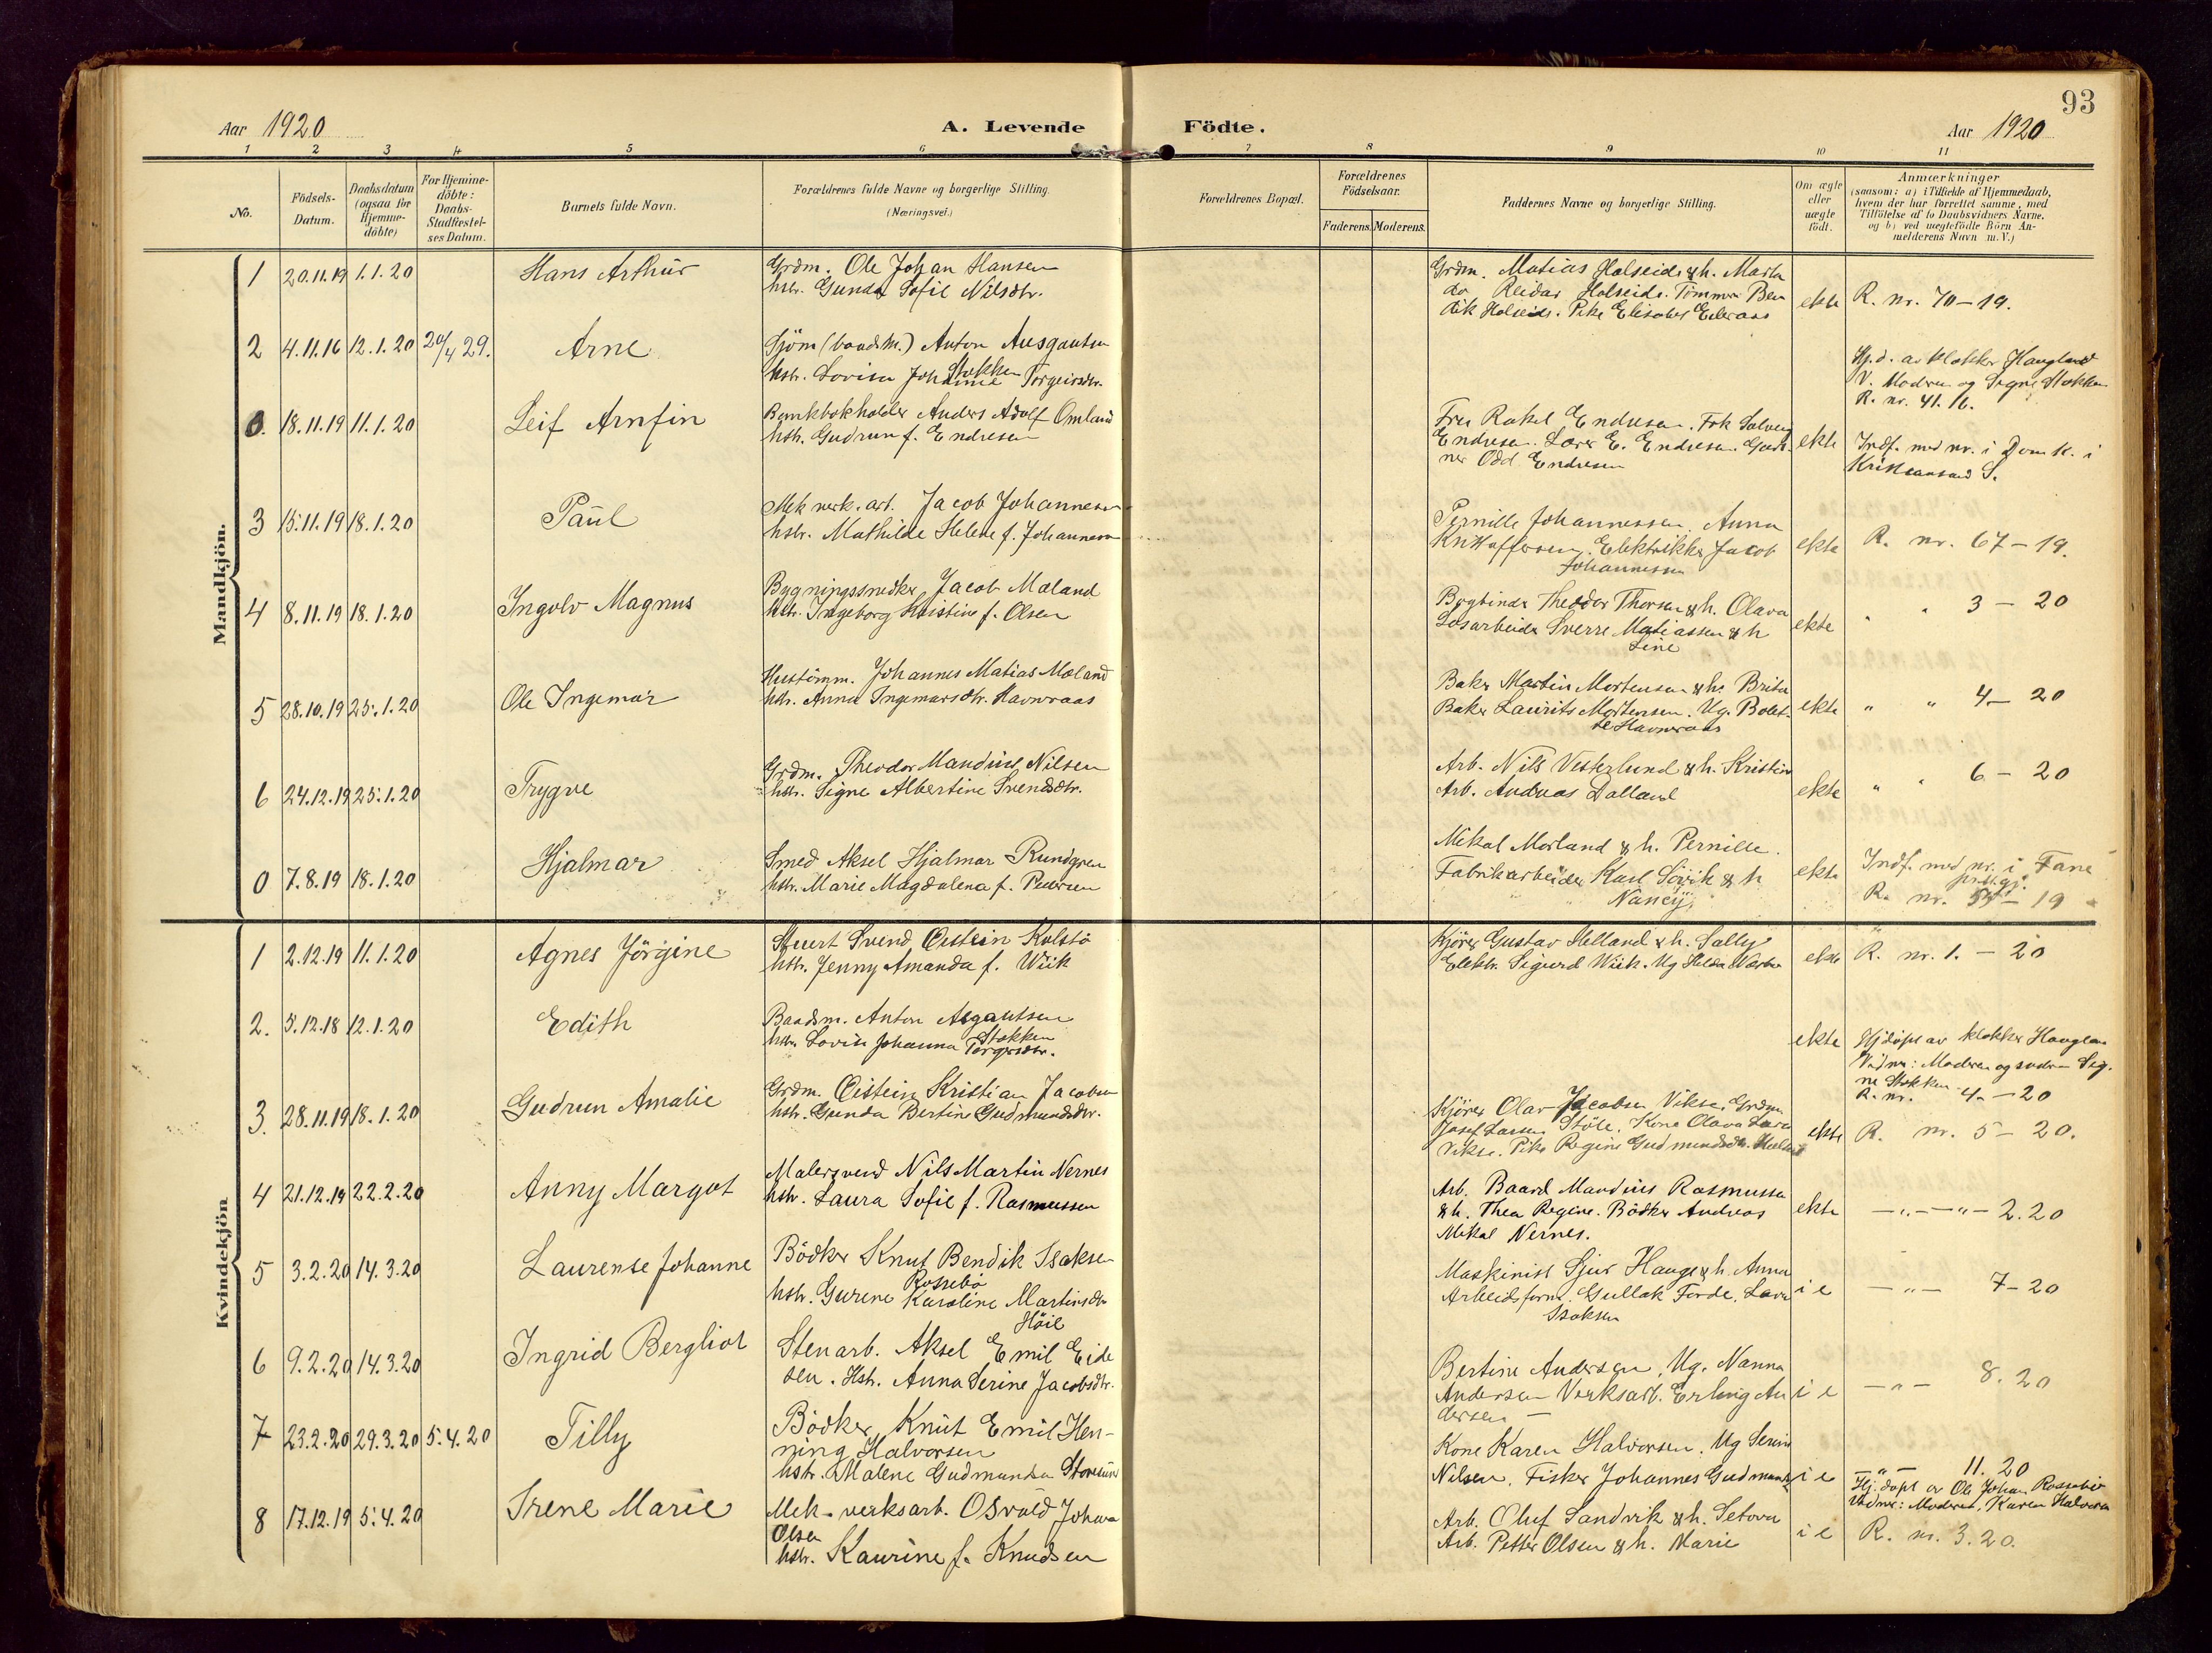 93
Aar 1920
A. Levende Födte.
Aar 1920
1 2 3 4 5 6 7 8 9 10 11
No.
Födsels-Datum.
Daabsdatum (ogsaa for Hjemme-döbte)
For Hjemme-döbte: Daabs-Stadfæstel-ses Datum.
Barnets fulde Navn.
Forældrenes fulde Navne og borgerlige Stilling.
(Næringsvei.)
Forældrenes Bopæl.
Forældrenes Födselsaar.
Faderens. Moderens.
Faddernes Navne og borgerlige Stilling.
Om ægte eller uægte født.
Anmærkninger
(saasom: a) i Tilfælde af Hjemmedaab,
hvem der har forrettet samme, med
Tilföielse af to Daabsvidners Navne.
og b) ved uægtefödte Börn An-
melderens Navn m. V.)
Mandkjön.
1 20.11.19 1.1.20 Hans Arthur
Grdm. Ole Johan Hansen
hstr. Gunda Sofie Nilsdtr.
Grdm. Matias Halseide & h. Marta
do Reidar Halseide. Tømmerm. Ben
dik Halseide. Pike Elisabet
ekte R. nr. 70-19.
2 4.11.16 12.1.20 20/4 29. Arne
Sjöm (baadsm.) Anton Ausgautsen
Stokken
hstr. Lovisa Johanne Torgeirsdtr.
Hj.d. av klokker Haugland
V. Moderen og Signe Stokken
R. nr. 41.16.
0. 18.11.19 11.1.20 Leif Arnfin
Bankbokholder Anders Adolf Omland
hstr. Gudrun f. Endresen
Fru Rakel Endresen. Frk Solveig
Endresen. Lærer E. Endresen. Gart-
ner Odd Endresen
ekte Indf. med nr. i Domk. i
Kristiansand S.
3 15.11.19 18.1.20 Paul
Mek verk. arb. Jacob Johannesen
hstr. Mathilde Helene f. Johannesen
Pernille Johannessen. Anna
Kristoffersen. Elektriker Jacob
Johannessen
ekte R. nr. 67-19.
4 8.11.19 18.1.20 Ingolv Magnus
Bygningssnedker Jacob Mæland
hstr. Ingeborg Kristine f. Olsen
Bogbinder Theodor Thorsen & h. Olava
Løsarbeider Sverre Matiassen & h
Line
ekte " " 3-20
5 28.10.19 25.1.20 Ole Ingemar
Hustömm. Johannes Matias Mæland
hstr. Anna Ingemarsdtr. Havnraas
Baker Martin Mortensen & h. Brita
Baker Laurits Mortensen. Ug. Bolet-
te Havnraas
ekte " " 4-20
6 24.12.19 25.1.20 Trygve
Grdm. Theodor Mandius Nilsen
hstr. Signe Albertine Svendsdtr.
Arb. Nils Vesterlund & h. Kristine
Arb. Andreas Dalland
ekte " " 6-20
0 7.8.19 18.1.20 Hjalmar
Smed Aksel Hjalmar Rundgren
hstr. Marie Magdalena f. Pedersen
Mikal Morland & h. Pernille.
Fabrikarbeider Karl Sövik & h
Nancy.
ekte Indf. med nr. i Fane
prestgj.
R. nr. 55-19
Kvindekjön
1 2.12.19 11.1.20 Agnes Jörgine
Stuert Svend Øistein Kolstö
hstr. Jenny Amanda f. Wiik
Kjörer Gustav Helland & h. Sally
Elektr. Sigurd Wiik. Ug Helda
ekte R. nr. 1.-20
2. 5.12.18 12.1.20 Edith
Baadsm. Anton Asgautsen
Stokken
hstr. Lovise Johanna Torgersdtr.
ekte Hjdöpt av klokker Hauglan
Vidner: Moderen og södren Sig-
ne Stokken
R. nr. 4-20
3. 28.11.19 18.1.20 Gudrun Amalie
Grdm. Øistein Kristian Jacobsen
hstr. Gunda Bertine Gudmundsdtr.
Kjörer Olav Jacobsen Vikse, Grdm
Josef Larsen Stöle. Kone Olava
Vikse. Pike Regine Gudmundsdtr.
ekte R. nr. 5-20.
4 21.12.19 22.2.20 Anny Margot
Malersvend Nils Martin Nernes
hstr. Laura Sofie f. Rasmussen
Arb. Baard Mandius Rasmussen
& h. Thea Regine. Bödker Andreas
Mikal Nernes.
ekte —"—"— 2.20
5 3.2.20 14.3.20 Laurense Johanne
Bödker Knut Bendik Isaksen
Rossebö
hstr. Gurene Karoline Martinsdtr
Höie
Maskinist Sjur Hauge & h. Anna
Arbeidsform. Gullak Förde. Lava
Isaksen
i e —"— 7-20
6 9.2.20 14.3.20 Ingrid Bergliot
Stenarb. Aksel Emil Eide
sen. Hstr. Anna Serine Jacobsdtr.
Bertine Andersen, Ug. Nanna
Andersen Verksarb. Erling An
dersen —
i e —"— 8.20
7 23.2.20 29.3.20 5.4.20 Tilly
Bödker Knut Emil Hen-
ning Halvorsen
hstr. Malene Gudmunda Storesund
Kone Karen Halvorsen. Ug Serine
Nilsen. Fisker Johannes Gudmunds
i e —"— 11.20
Hj. döpt av Ole Johan Rossebö
Vidner: Moderen, Karen Halvorsen
8 17.12.19 5.4.20 Irene Marie
Mek-verksarb. Osvald Johan
Olsen
hstr. Kaurine f. Knudsen
Arb. Oluf Sandvik & h. Setova
Arb. Petter Olsen & h. Marie
i e R. nr. 3.20.